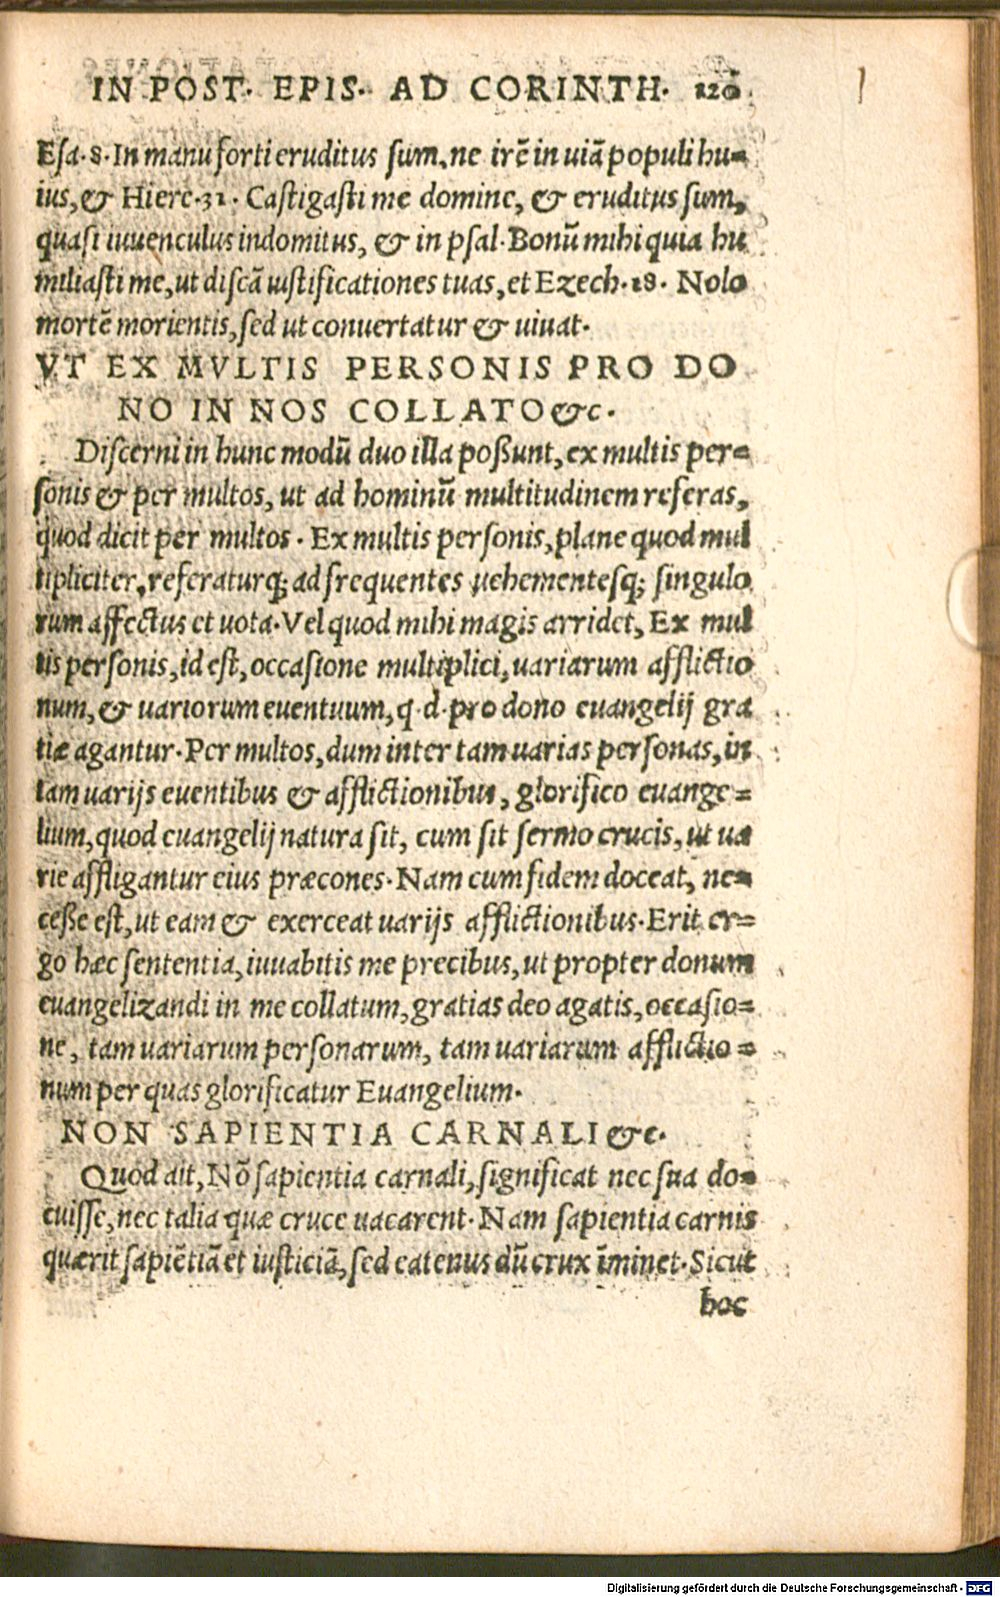 IN POST. EPIS. AD CORINTH. 120
Esa.8.In manu forti eruditus sum,ne irē in uiā populi hu-
ius,& Hiere.31. Castigasti me domine, & eruditus sum,
quasi iuuenculus indomitus, & in psal.Bonū mihi quia hu
miliasti me,ut discā iustificationes tuas,et Ezech.18. Nolo
mortē morientis,sed ut conuertatur & uiuat.
VT EX MVLTIS PERSONIS PRO DO
NO IN NOS COLLATO &c.
Discerni in hunc modū duo illa poßunt,ex multis per-
sonis & per multos, ut ad hominū multitudinem referas,
quod dicit per multos. Ex multis personis,plane quod mul
tipliciter,referaturq; ad frequentes uehementesq; singulo
rum affectus et uota.Vel quod mihi magis arridet, Ex mul
tis personis,id est,occasione multiplici,uariarum afflictio
num,& uariorum euentuum,q.d.pro dono euangelij gra
tiæ agantur.Per multos,dum inter tam uarias personas,in
tam uarijs euentibus & afflictionibus, glorifico euange-
lium,quod euangelij natura sit, cum sit sermo crucis,ut ua
rie affligantur eius præcones.Nam cum fidem doceat, ne-
ceße est,ut eam & exerceat uarijs afflictionibus.Erit er-
go hæc sententia,iuuabitis me precibus,ut propter donum
euangelizandi in me collatum,gratias deo agatis,occasio-
ne, tam uariarum personarum, tam uariarum afflictio-
num per quas glorificatur Euangelium.
NON SAPIENTIA CARNALI &c.
Quod ait,Nō sapientia carnali,significat nec sua do-
cuisse,nec talia quæ cruce uacarent.Nam sapientia carnis
quærit sapiētiā et iusticiā,sed eatenus dū crux īminet.Sicut
hoc
Digitalisierung gefördert durch die Deutsche Forschungsgemeinschaft - DFG